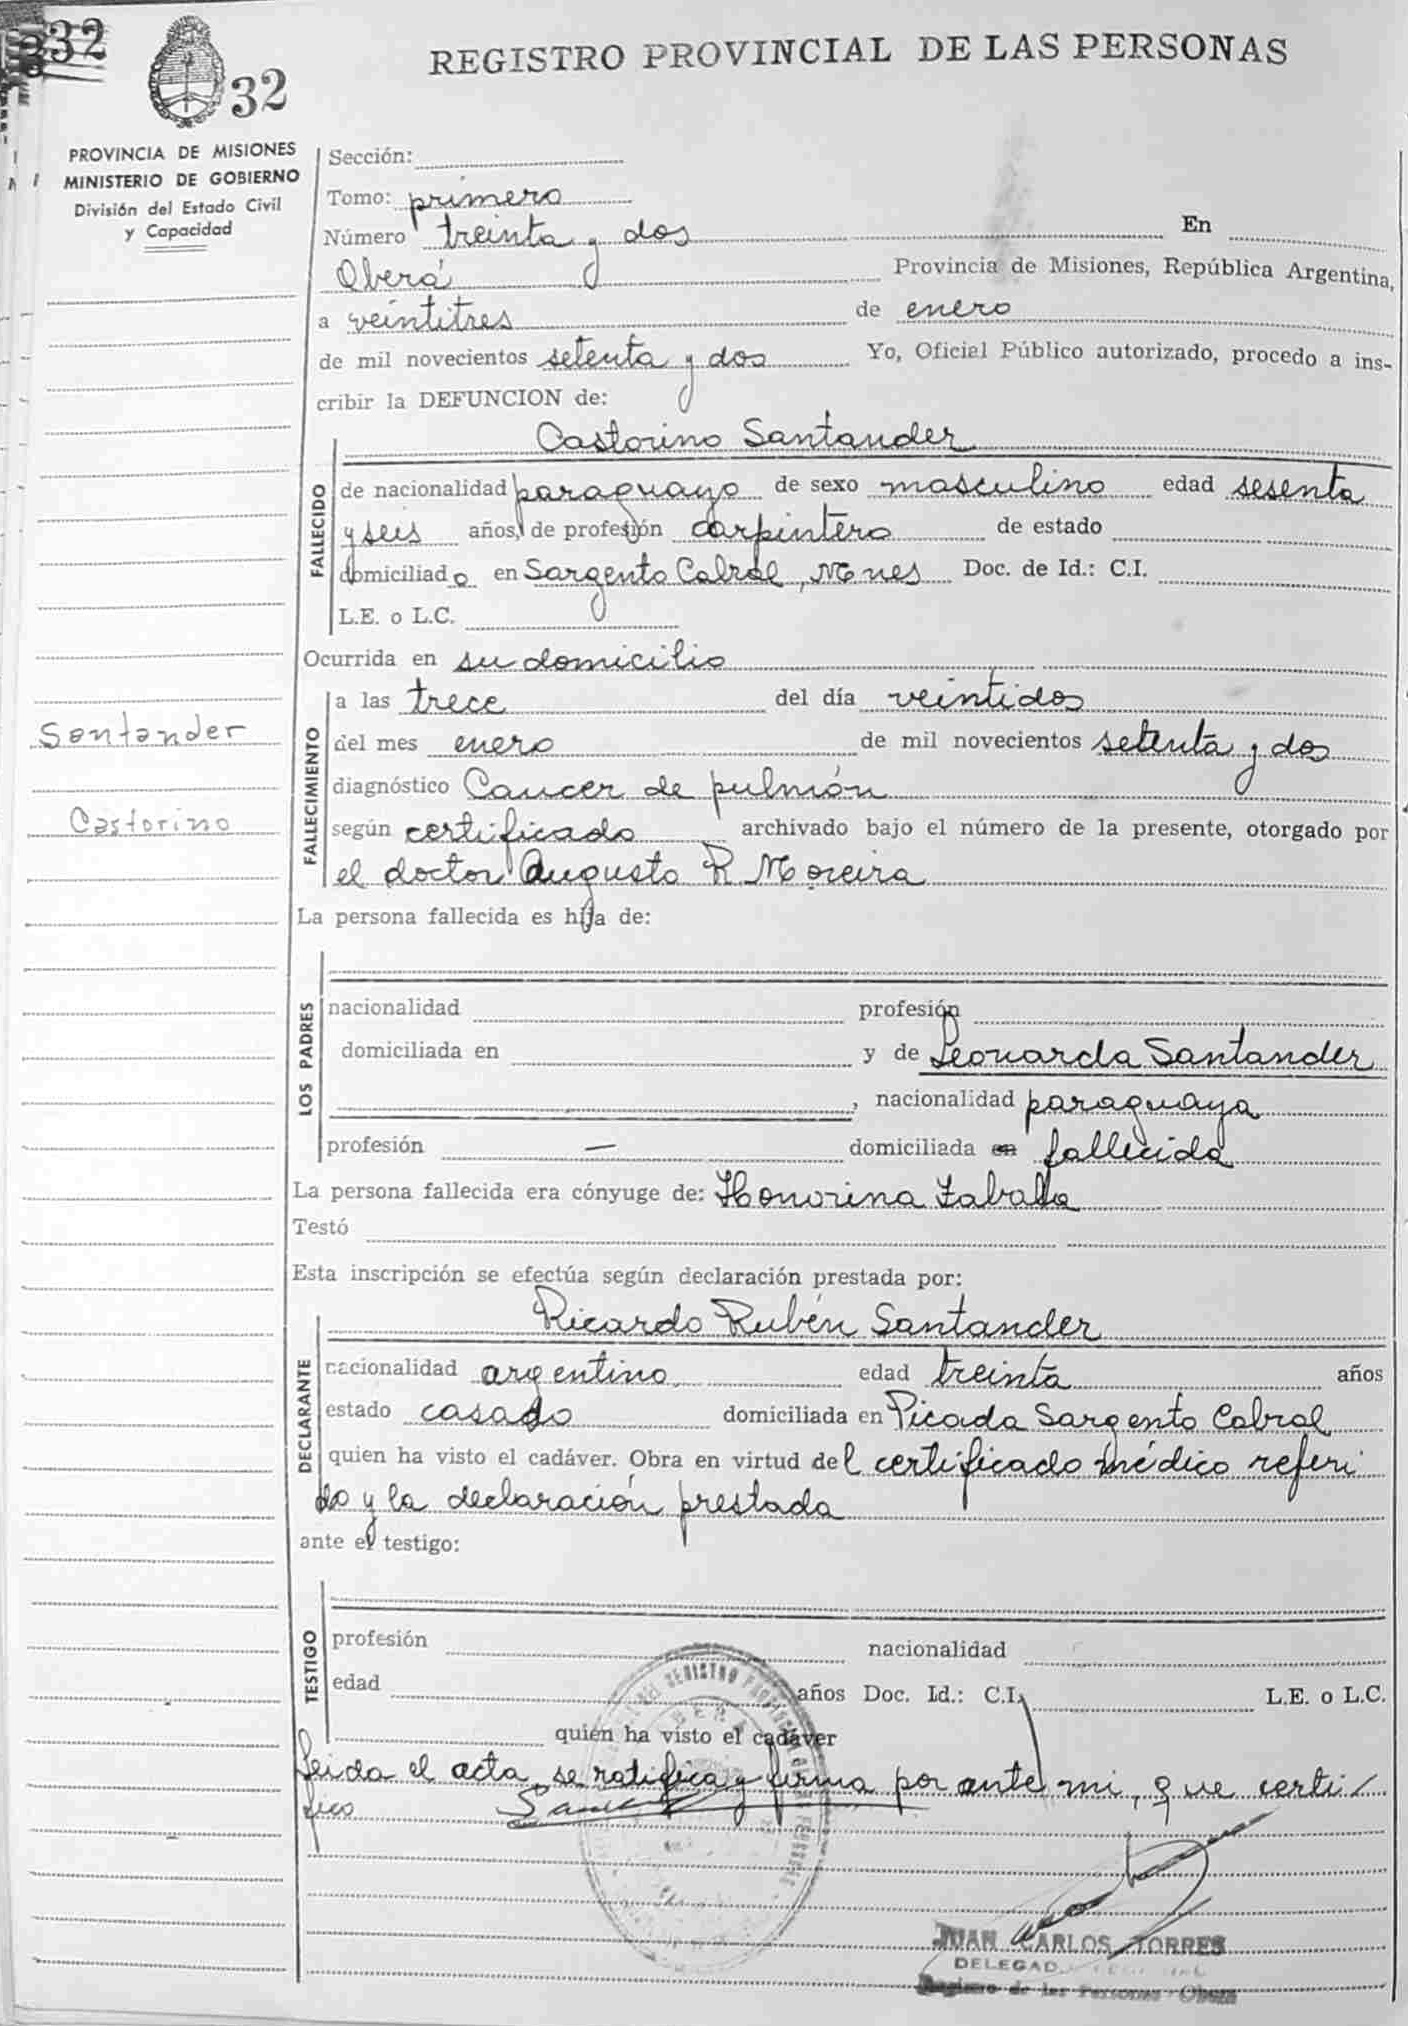 332
32
REGISTRO PROVINCIAL DE LAS PERSONAS
PROVINCIA DE MISIONES
MINISTERIO DE GOBIERNO
División del Estado Civil
y Capacidad
Sección:
Tomo: primero
Número treinta y dos En
Oberá Provincia de Misiones, República Argentina,
a veintitres de enero
de mil novecientos setenta y dos Yo, Oficial Público autorizado, procedo a ins-
cribir la DEFUNCION de:
Castorino Santander
FALLECIDO
de nacionalidad paraguayo de sexo masculino edad sesenta
y seis años, de profesión carpintero de estado
domiciliado en Sargento Cabral, Mnes Doc. de Id.: C.I.
L.E. o L.C.
Ocurrida en su domicilio
FALLECIMIENTO
a las trece del día veintidos
del mes enero de mil novecientos setenta y dos
diagnóstico Cancer de pulmón
según certificado archivado bajo el número de la presente, otorgado por
el doctor Augusto R. Moreira
Santander
Castorino
La persona fallecida es hija de:
LOS PADRES
nacionalidad profesión
domiciliada en y de Leonarda Santander
, nacionalidad paraguaya
profesión — domiciliada en fallecida
La persona fallecida era cónyuge de: Honorina Zabala
Testó
Esta inscripción se efectúa según declaración prestada por:
Ricardo Rubén Santander
DECLARANTE
nacionalidad argentino edad treinta años
estado casado domiciliada en Picada Sargento Cabral
quien ha visto el cadáver. Obra en virtud del certificado médico referi
do y la declaración prestada
ante el testigo:
TESTIGO
profesión nacionalidad
edad años Doc. Id.: C.I. L.E. o L.C.
quien ha visto el cadáver
Leida el acta, se ratifica y firma por ante mi, que certi
fico
JUAN CARLOS TORRES
DELEGADO
Registro de las Personas - Oberá